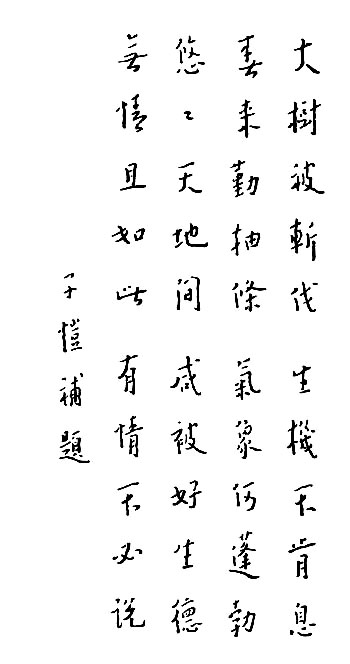 大樹被斬伐 生機不肯息
春來勤抽條 氣象何蓬勃
悠〻天地間 咸被好生德
無情且如此 有情不必說
子愷補題